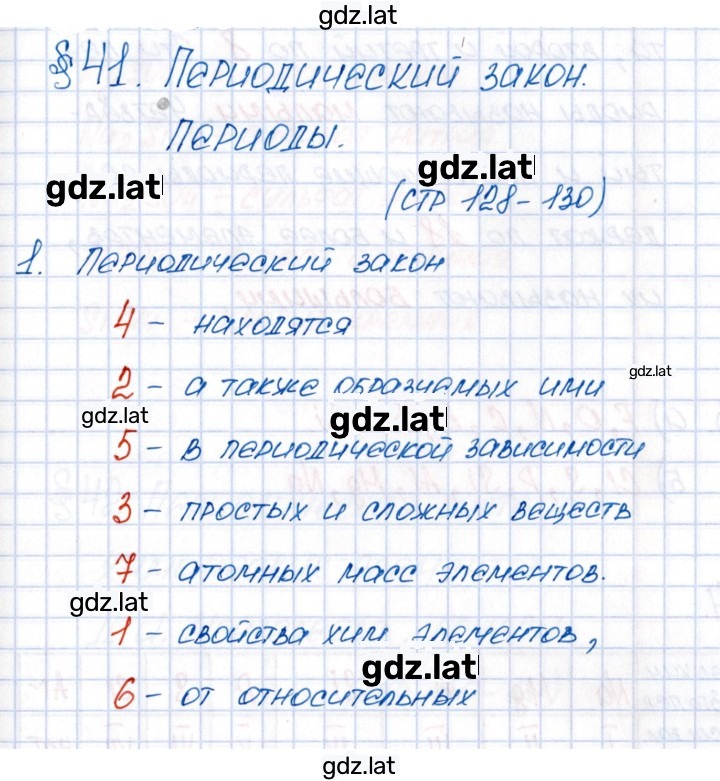 gdz.lat
§ 41. Периодический закон.
Периоды.
gdz.lat
gdz.lat
(стр 128-130)
1. Периодический закон
4 - находятся
gdz.lat
2 - а также образуемых ими
gdz.lat
gdz.lat
5 - в периодической зависимости
3 - простых и сложных веществ
7 - атомных масс элементов.
gdz.lat
1 - свойства хим элементов,
gdz.lat
6 - от относительных
gdz.lat